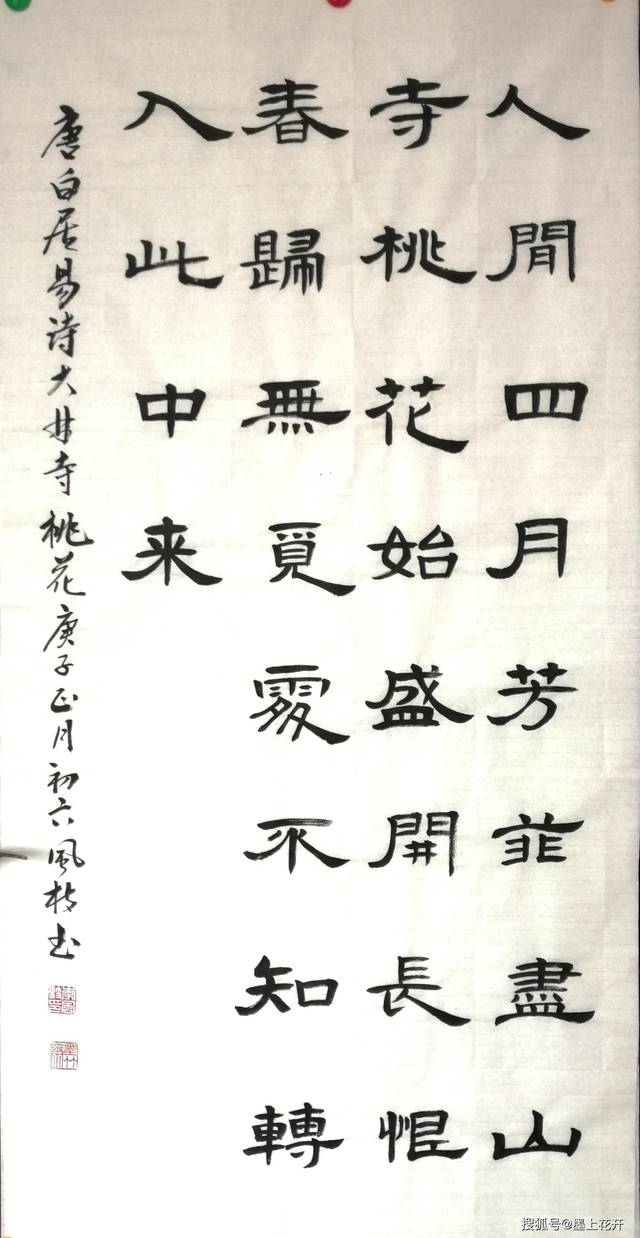 人閒四月芳菲盡山
寺桃花始盛開長恨
春歸無覓處不知轉
入此中来
唐白居易诗大林寺桃花庚子正月初六風枝书
搜狐号@墨上花开